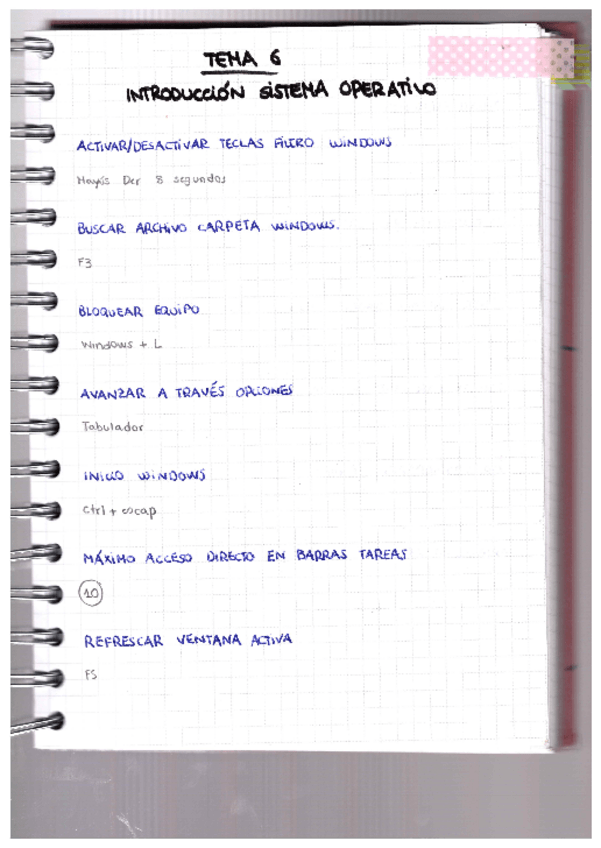 TEMA 6
INTRODUCCIÓN SISTEMA OPERATIVO
ACTIVAR/DESACTIVAR TECLAS FILTRO WINDOWS
Mayús Der 8 segundos
BUSCAR ARCHIVO CARPETA WINDOWS.
F3
BLOQUEAR EQUIPO
Windows + L
AVANZAR A TRAVÉS OPCIONES
Tabulador
INICIO WINDOWS
Ctrl + escap
MÁXIMO ACCESO DIRECTO EN BARRAS TAREAS
10
REFRESCAR VENTANA ACTIVA
F5